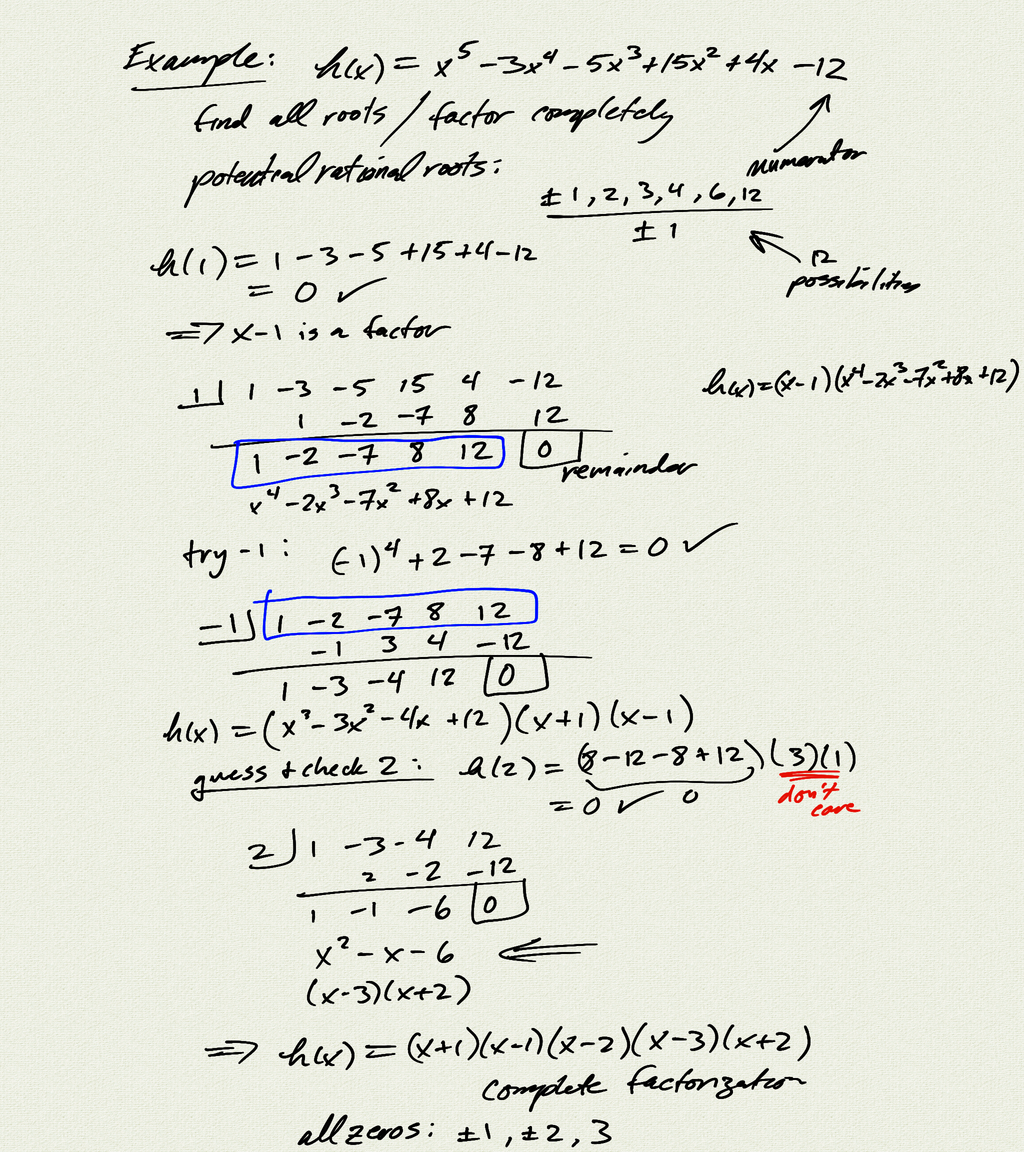 Example: h(x) = x⁵ -3x⁴ - 5x³ +15x² +4x -12
find all roots / factor completely
numerator
potential rational roots:
± 1, 2, 3, 4, 6, 12
± 1
12
possibilities
h(1) = 1 - 3 - 5 +15 +4 -12
= 0 ✓
⇒ x-1 is a factor
1 | 1 -3 -5 15 4 -12
h(x) = (x-1)(x⁴-2x³-7x²+8x+12)
1 -2 -7 8 12
1 -2 -7 8 12 0
remainder
x⁴ -2x³ -7x² +8x +12
try -1: (-1)⁴ + 2 - 7 - 8 + 12 = 0 ✓
-1 | 1 -2 -7 8 12
-1 3 4 -12
1 -3 -4 12 0
h(x) = (x³ - 3x² - 4x +12)(x+1)(x-1)
guess + check 2: h(2) = (8 -12 -8 +12)(3)(1)
= 0 ✓ 0
don't
care
2 | 1 -3 -4 12
2 -2 -12
1 -1 -6 0
x² - x - 6 ⇐
(x-3)(x+2)
⇒ h(x) = (x+1)(x-1)(x-2)(x-3)(x+2)
complete factorization
all zeros: ±1, ±2, 3